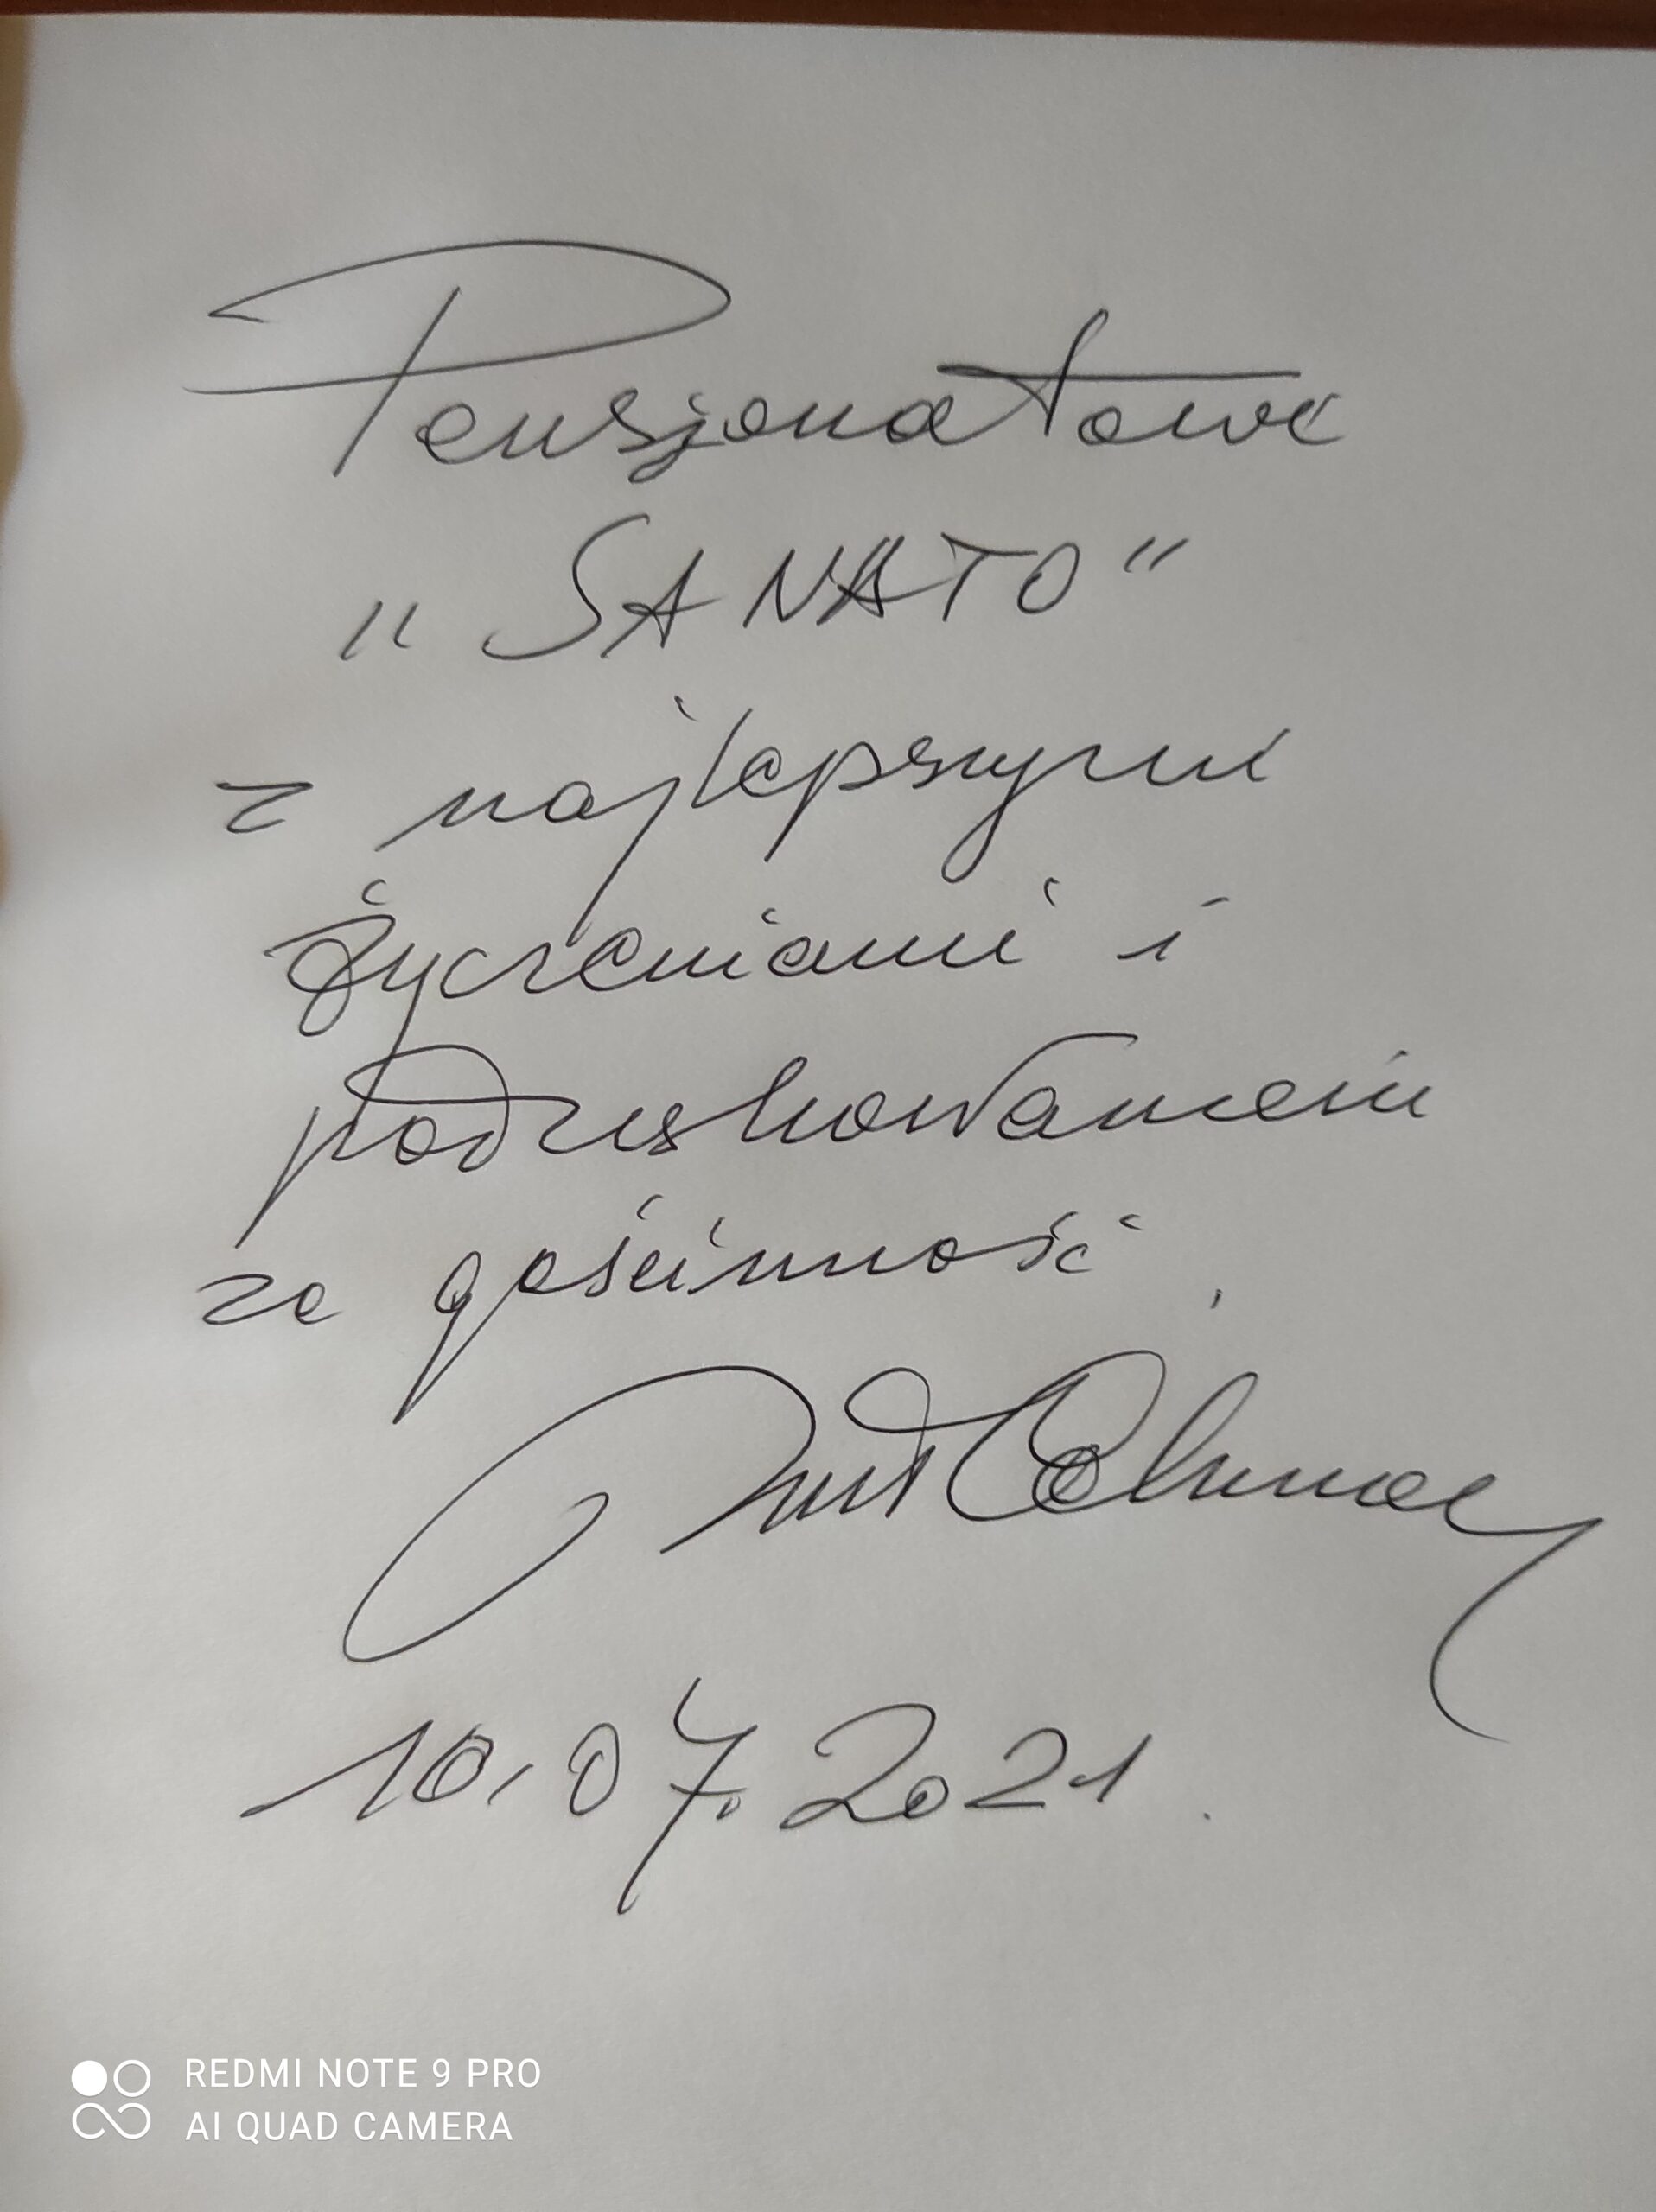 Pensjonatowi
„SANATO"
z najlepszymi
życzeniami i
podziękowaniem
za gościnność,
10.07.2021.
REDMI NOTE 9 PRO
AI QUAD CAMERA